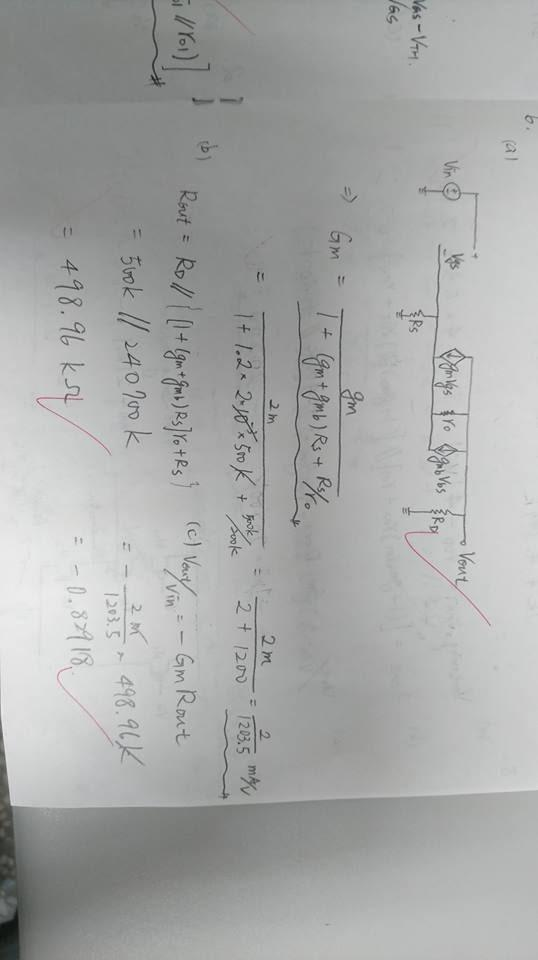 VGS-VTH.
VGS
ro1 // ro1)]
]
6.
(a)
Vin
+
Vgs
-
Rs
gmVgs
ro
gmbVbs
RD
Vout
=> Gm = gm / 1 + (gm+gmb)Rs + Rs/ro
= 2m / 1 + 1.2 × 2×10⁻³ × 500k + 500k/200k = 2m / 2 + 1200 = 2/1203.5 mA/V
(b) Rout = RD // {[1+(gm+gmb)Rs]ro+Rs}
= 500k // 240700k
= 498.96 kΩ
(c) Vout/Vin = - Gm Rout
= - 2m/1203.5 × 498.96k
= - 0.82918.